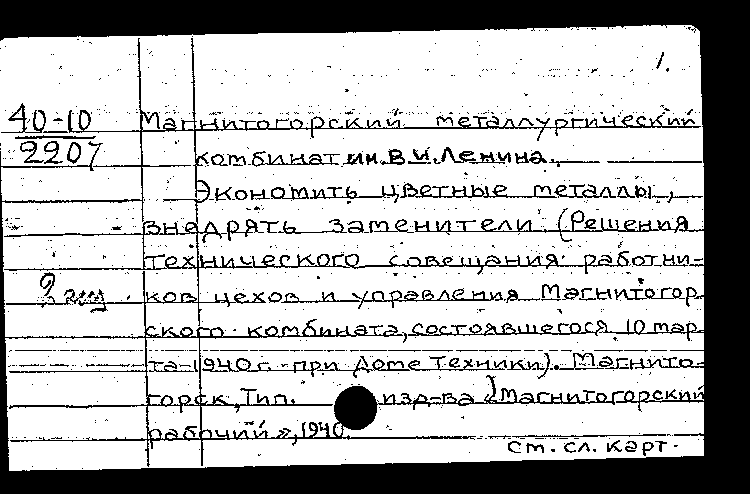 1.
40-10
2207
Магнитогорский металлургический
комбинат им. В. И. Ленина.
Экономить цветные металлы,
внедрять заменители. (Решения
технического совещания работни-
ков цехов и управления Магнитогор-
ского комбината, состоявшегося 10 мар-
та 1940 г. при Доме Техники). Магнито-
горск, Тип. изд-ва "Магнитогорский
рабочий", 1940.
см. сл. карт.